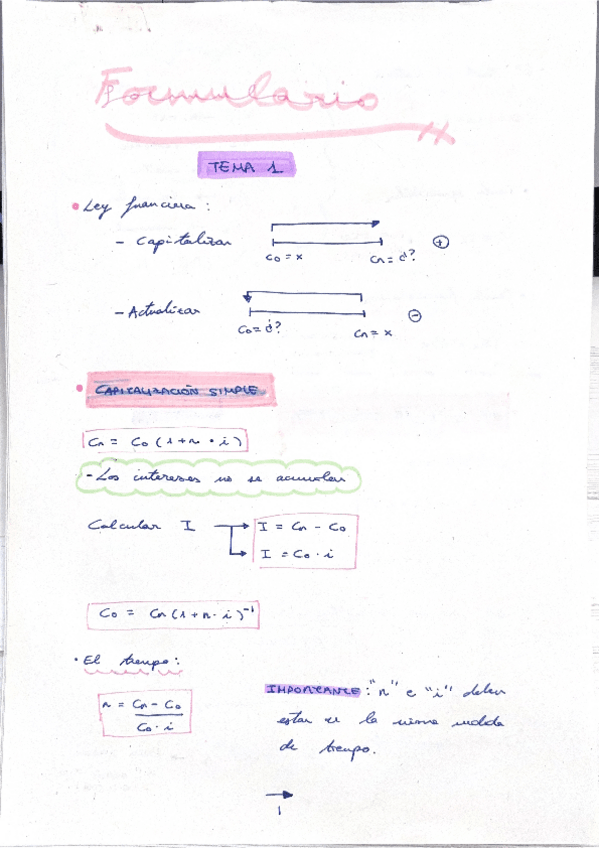 Formulario
TEMA 1
• Ley financiera :
- Capitalizar
C₀ = x
Cn = ¿?
+
- Actualizar
C₀ = ¿?
Cn = x
-
• CAPITALIZACIÓN SIMPLE
Cn = C₀ (1+n • i)
- Los intereses no se acumulan
Calcular I
I = Cn - C₀
I = C₀ · i
C₀ = Cn (1+n · i)⁻¹
• El tiempo :
n = Cn - C₀
C₀ · i
IMPORTANTE : "n" e "i" deben
estar en la misma medida
de tiempo.
1